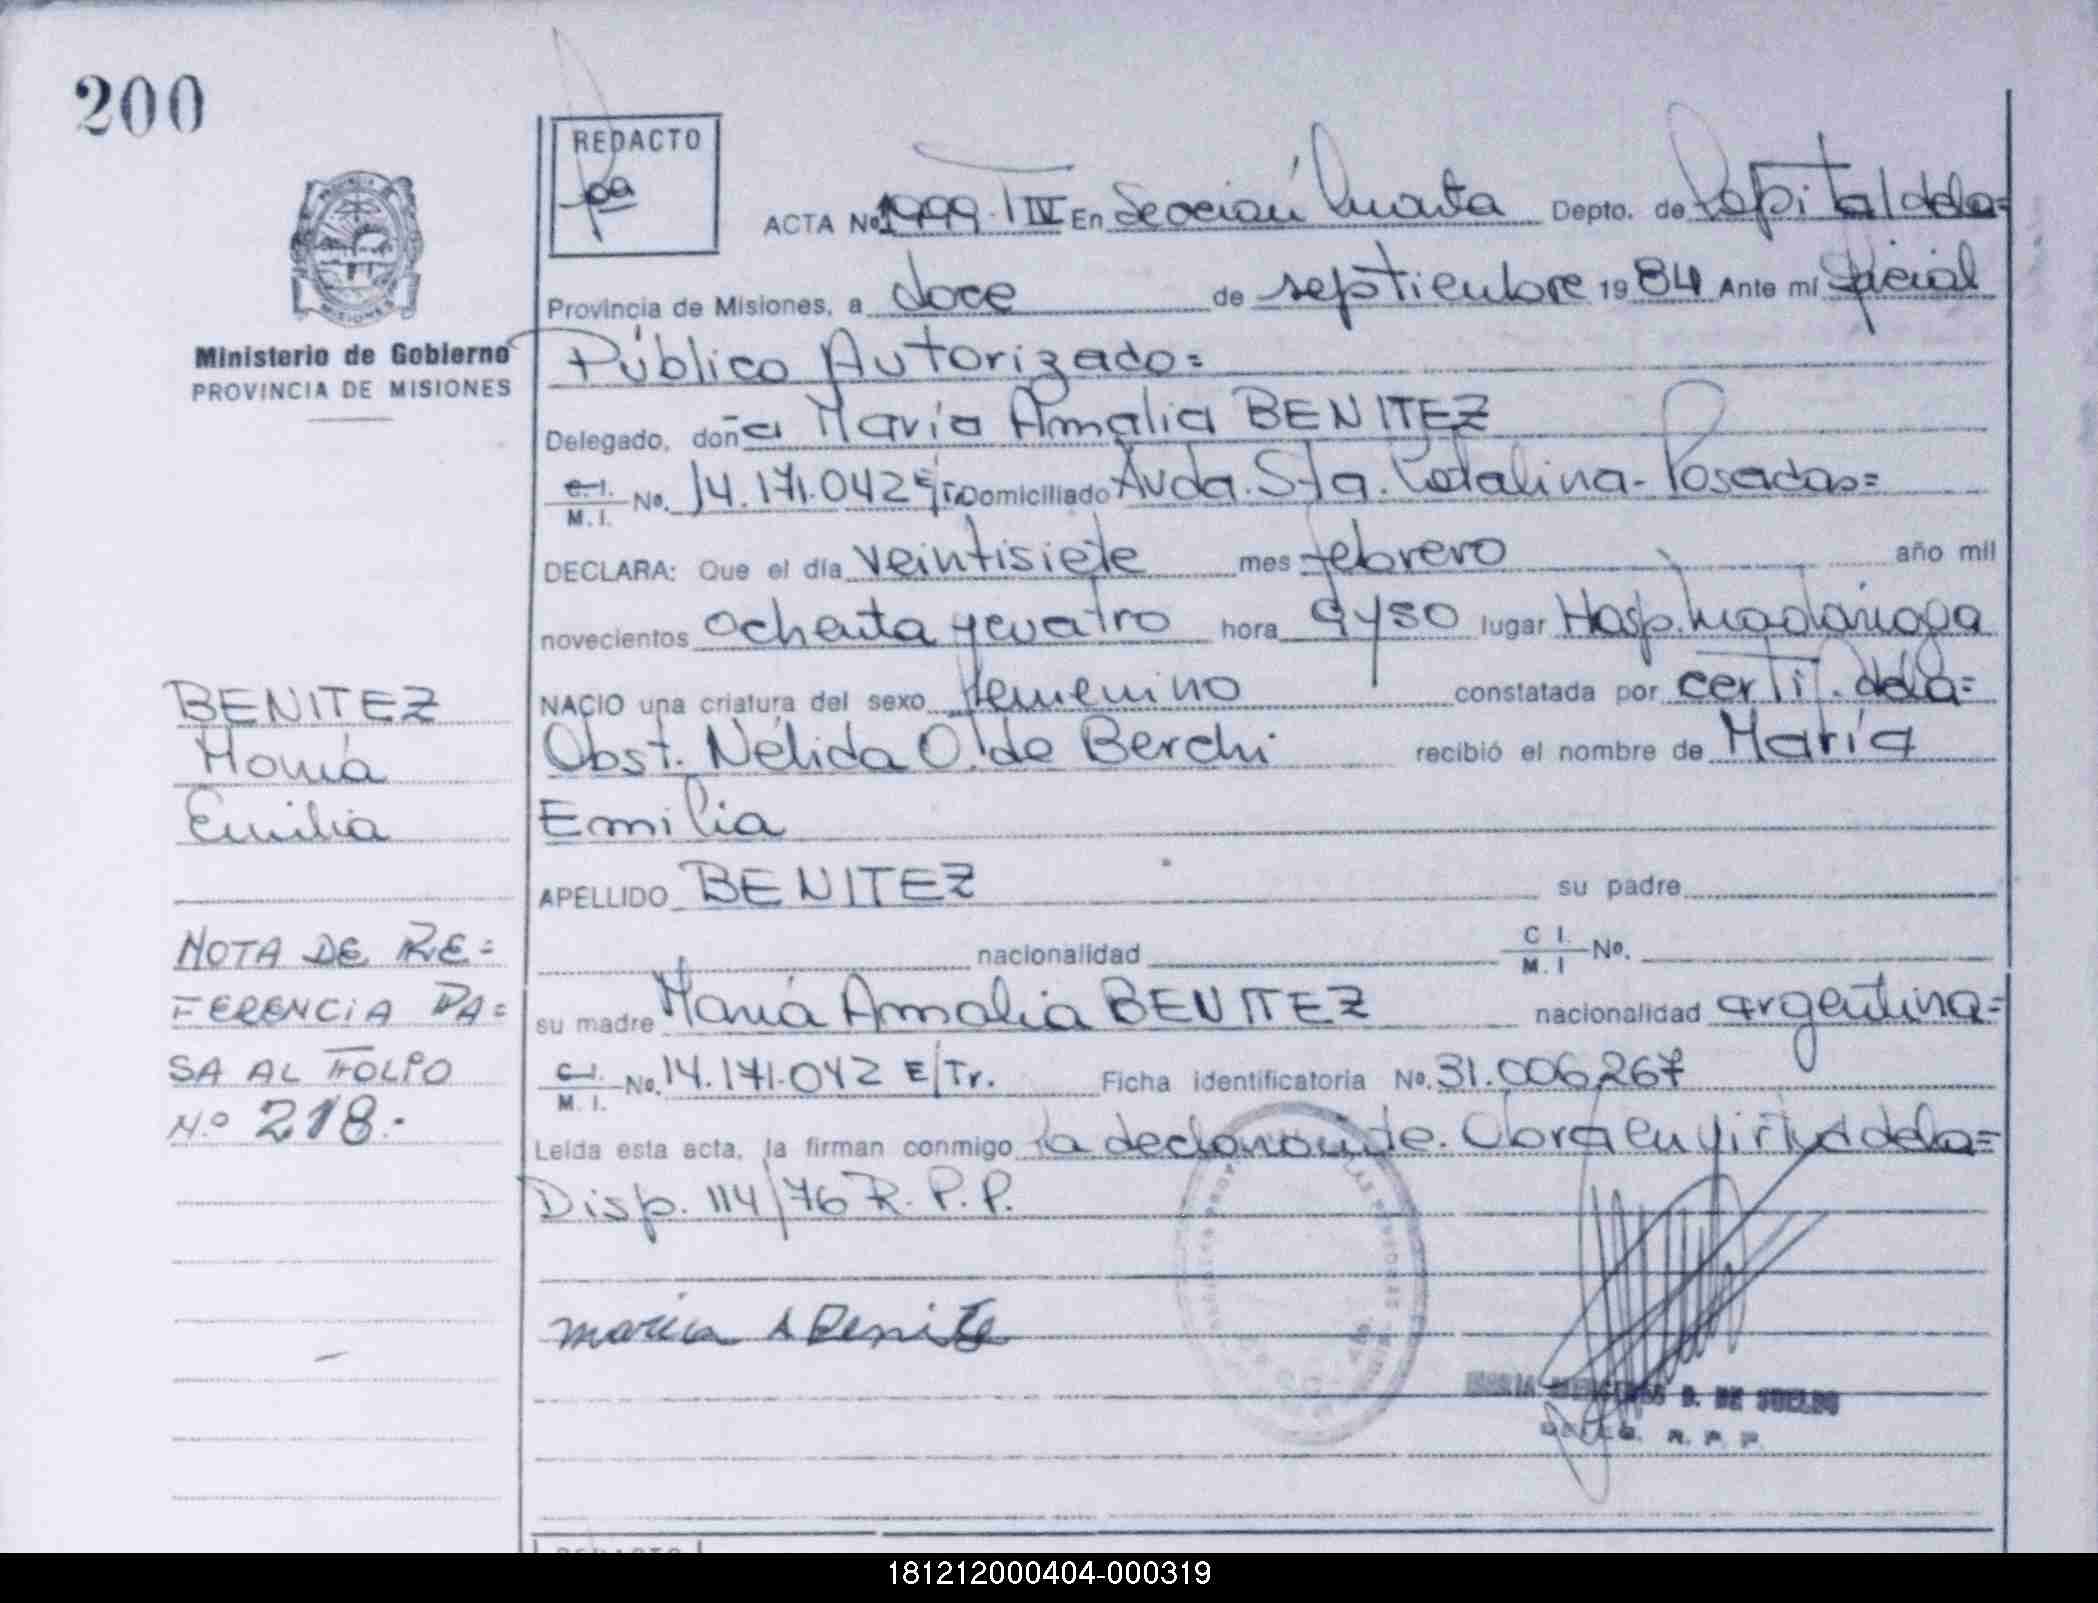 200
REDACTO
ACTA No 1999. T IV En Sección Cuarta Depto. de Capital dela=
Provincia de Misiones, a doce de septiembre 1984 Ante mí Oficial
Público Autorizado=
Ministerio de Gobierno
PROVINCIA DE MISIONES
Delegado, doña María Amalia BENITEZ
C.I. M.I. No. 14.171.042 E/Tr. Domiciliado Avda. Sta. Catalina - Posadas=
DECLARA: Que el día veintisiete mes febrero año mil
novecientos ochenta y cuatro hora 9 y 50 lugar Hosp. Madariaga
NACIO una criatura del sexo femenino constatada por certif. dela=
Obst. Nélida O. de Berchi recibió el nombre de María
Emilia
APELLIDO BENITEZ su padre
nacionalidad C I. M. I No.
su madre María Amalia BENITEZ nacionalidad argentina=
C.I. M. I. No. 14.171.042 E/Tr. Ficha identificatoria No. 31.006,267
Leída esta acta, la firman conmigo la declarante. Obra en virtud dela=
Disp. 114/76 R. P. P.
BENITEZ
María
Emilia
NOTA DE RE=
FERENCIA PA=
SA AL FOLIO
N.º 218.-
maria A Benite
D. DE SUELDO
R. P. P.
181212000404-000319